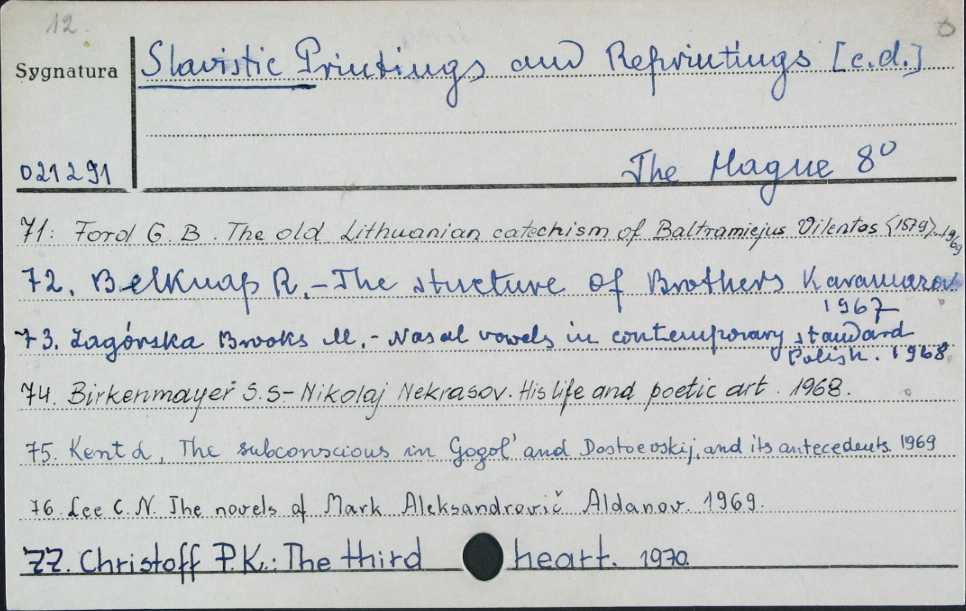 12.
Sygnatura Slavistic Printings and Reprintings [c.d.]
021291 The Hague 8°
71: Ford G. B. The old Lithuanian catechism of Baltramiejus Vilentas <1579>. 1969
72. Belknap R. - The structure of Brothers Karamazov
1967
73. Zagórska Brooks M. - Nasal vowels in contemporary standard
Polish. 1968
74. Birkenmayer S.S - Nikolaj Nekrasov. His life and poetic art. 1968.
75. Kent L, The subconscious in Gogol' and Dostoevskij, and its antecedents 1969
76. Lee C. N. The novels of Mark Aleksandrovič Aldanov. 1969.
77. Christoff P.K.: The third heart. 1970.